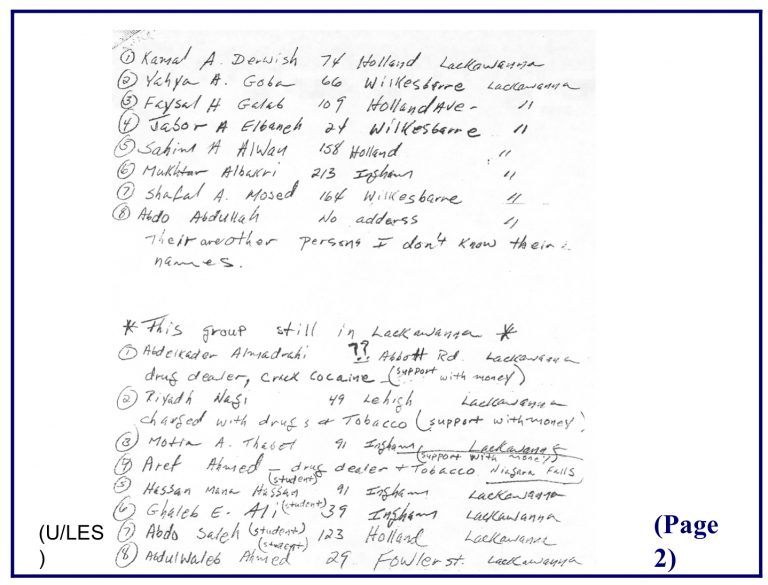 ① Kamal A. Derwish 74 Holland Lackawanna
② Yahya A. Goba 66 Wilkesbarre Lackawanna
③ Faysal H Galab 109 Holland Ave - "
④ Jabor A Elbaneh 24 Wilkesbarre "
⑤ Sahim A Alwan 158 Holland "
⑥ Mukhtar Albakri 213 Ingham "
⑦ Shafal A. Mosed 164 Wilkesbarre "
⑧ Abdo Abdullah No adderss "
Their are other persons I don't know their
names.
* This group still in Lackawanna *
① Abdelkader Almadrahi ?? Abbott Rd. Lackawanna
drug dealer, crack cocaine - (support with money)
② Riyadh Nagi 49 Lehigh Lackawanna
charged with drugs & Tobacco (support with money)
③ Motia A. Thabet 91 Ingham, Lackawanna
(support with money)
④ Aref Ahmed - drug dealer + Tobacco Niagara Falls
(student)
⑤ Hassan Mana Hassan 91 Ingham Lackawanna
⑥ Ghaleb E. Ali (student) 39 Ingham Lackawanna
⑦ Abdo Saleh (student) 123 Holland Lackawanna
(student)
⑧ AbdulWaleb Ahmed 29 Fowler st. Lackawanna
(U/LES
)
(Page
2)